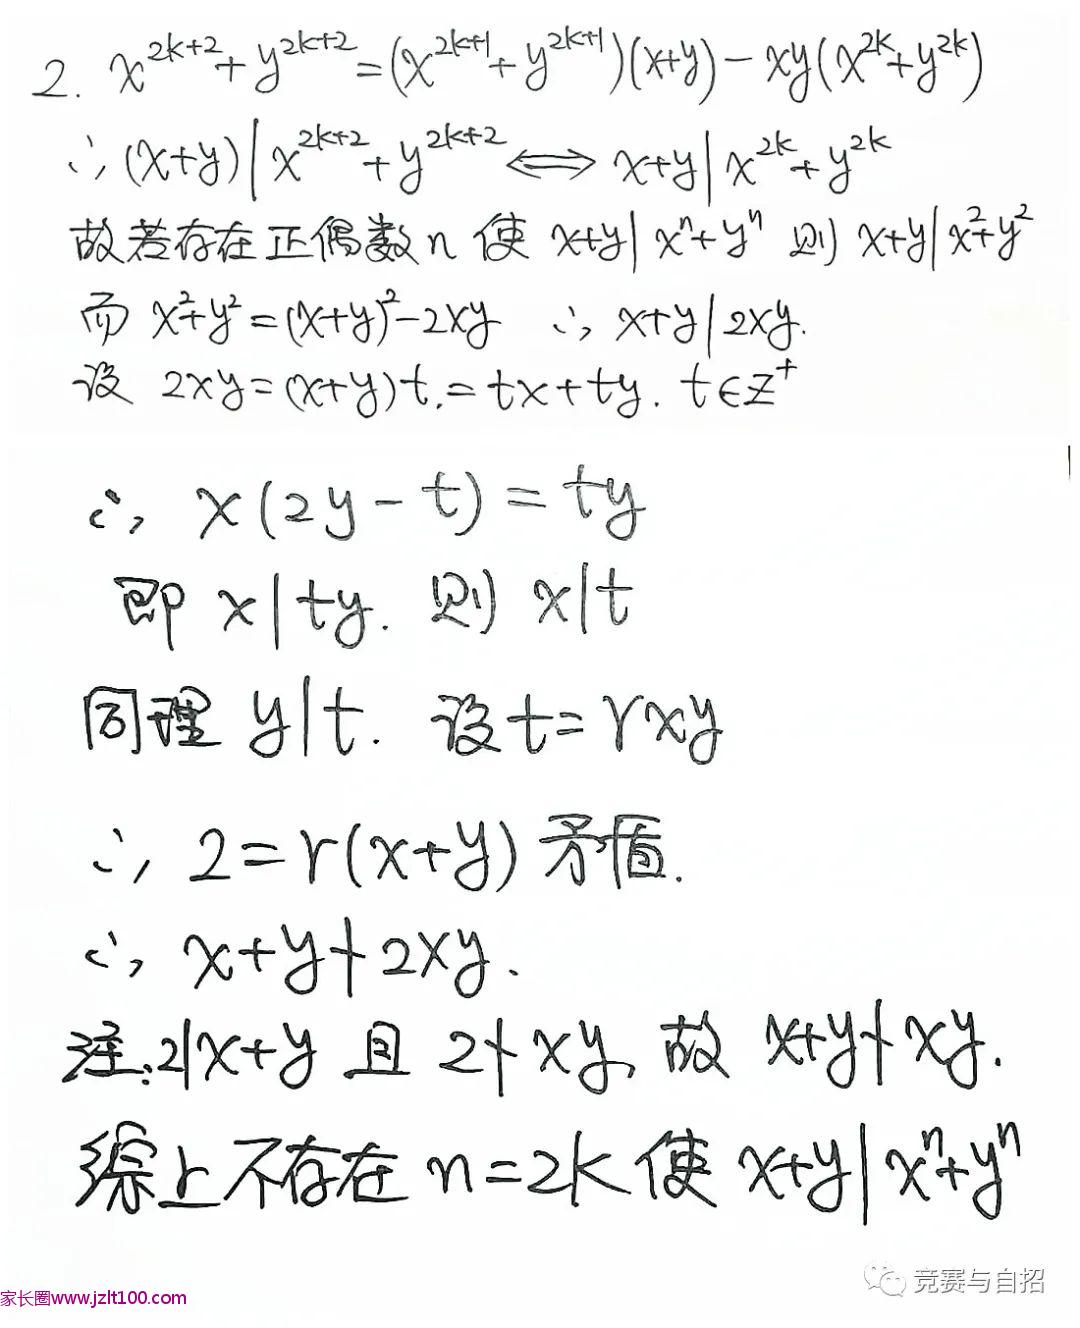 2. x^{2k+2}+y^{2k+2}=(x^{2k+1}+y^{2k+1})(x+y)-xy(x^{2k}+y^{2k})
∴(x+y)|x^{2k+2}+y^{2k+2}⟺x+y|x^{2k}+y^{2k}
故若存在正偶数n使 x+y|x^n+y^n 则 x+y|x^2+y^2
而 x^2+y^2=(x+y)^2-2xy ∴ x+y|2xy.
设 2xy=(x+y)t.=tx+ty. t∈Z^+
∴ x(2y-t)=ty
即 x|ty. 则 x|t
同理 y|t. 设t=rxy
∴ 2=r(x+y) 矛盾.
∴ x+y∤2xy.
注:2|x+y 且 2∤xy, 故 x+y∤xy.
综上不存在n=2k使 x+y|x^n+y^n
竞赛与自招
家长圈www.jzlt100.com